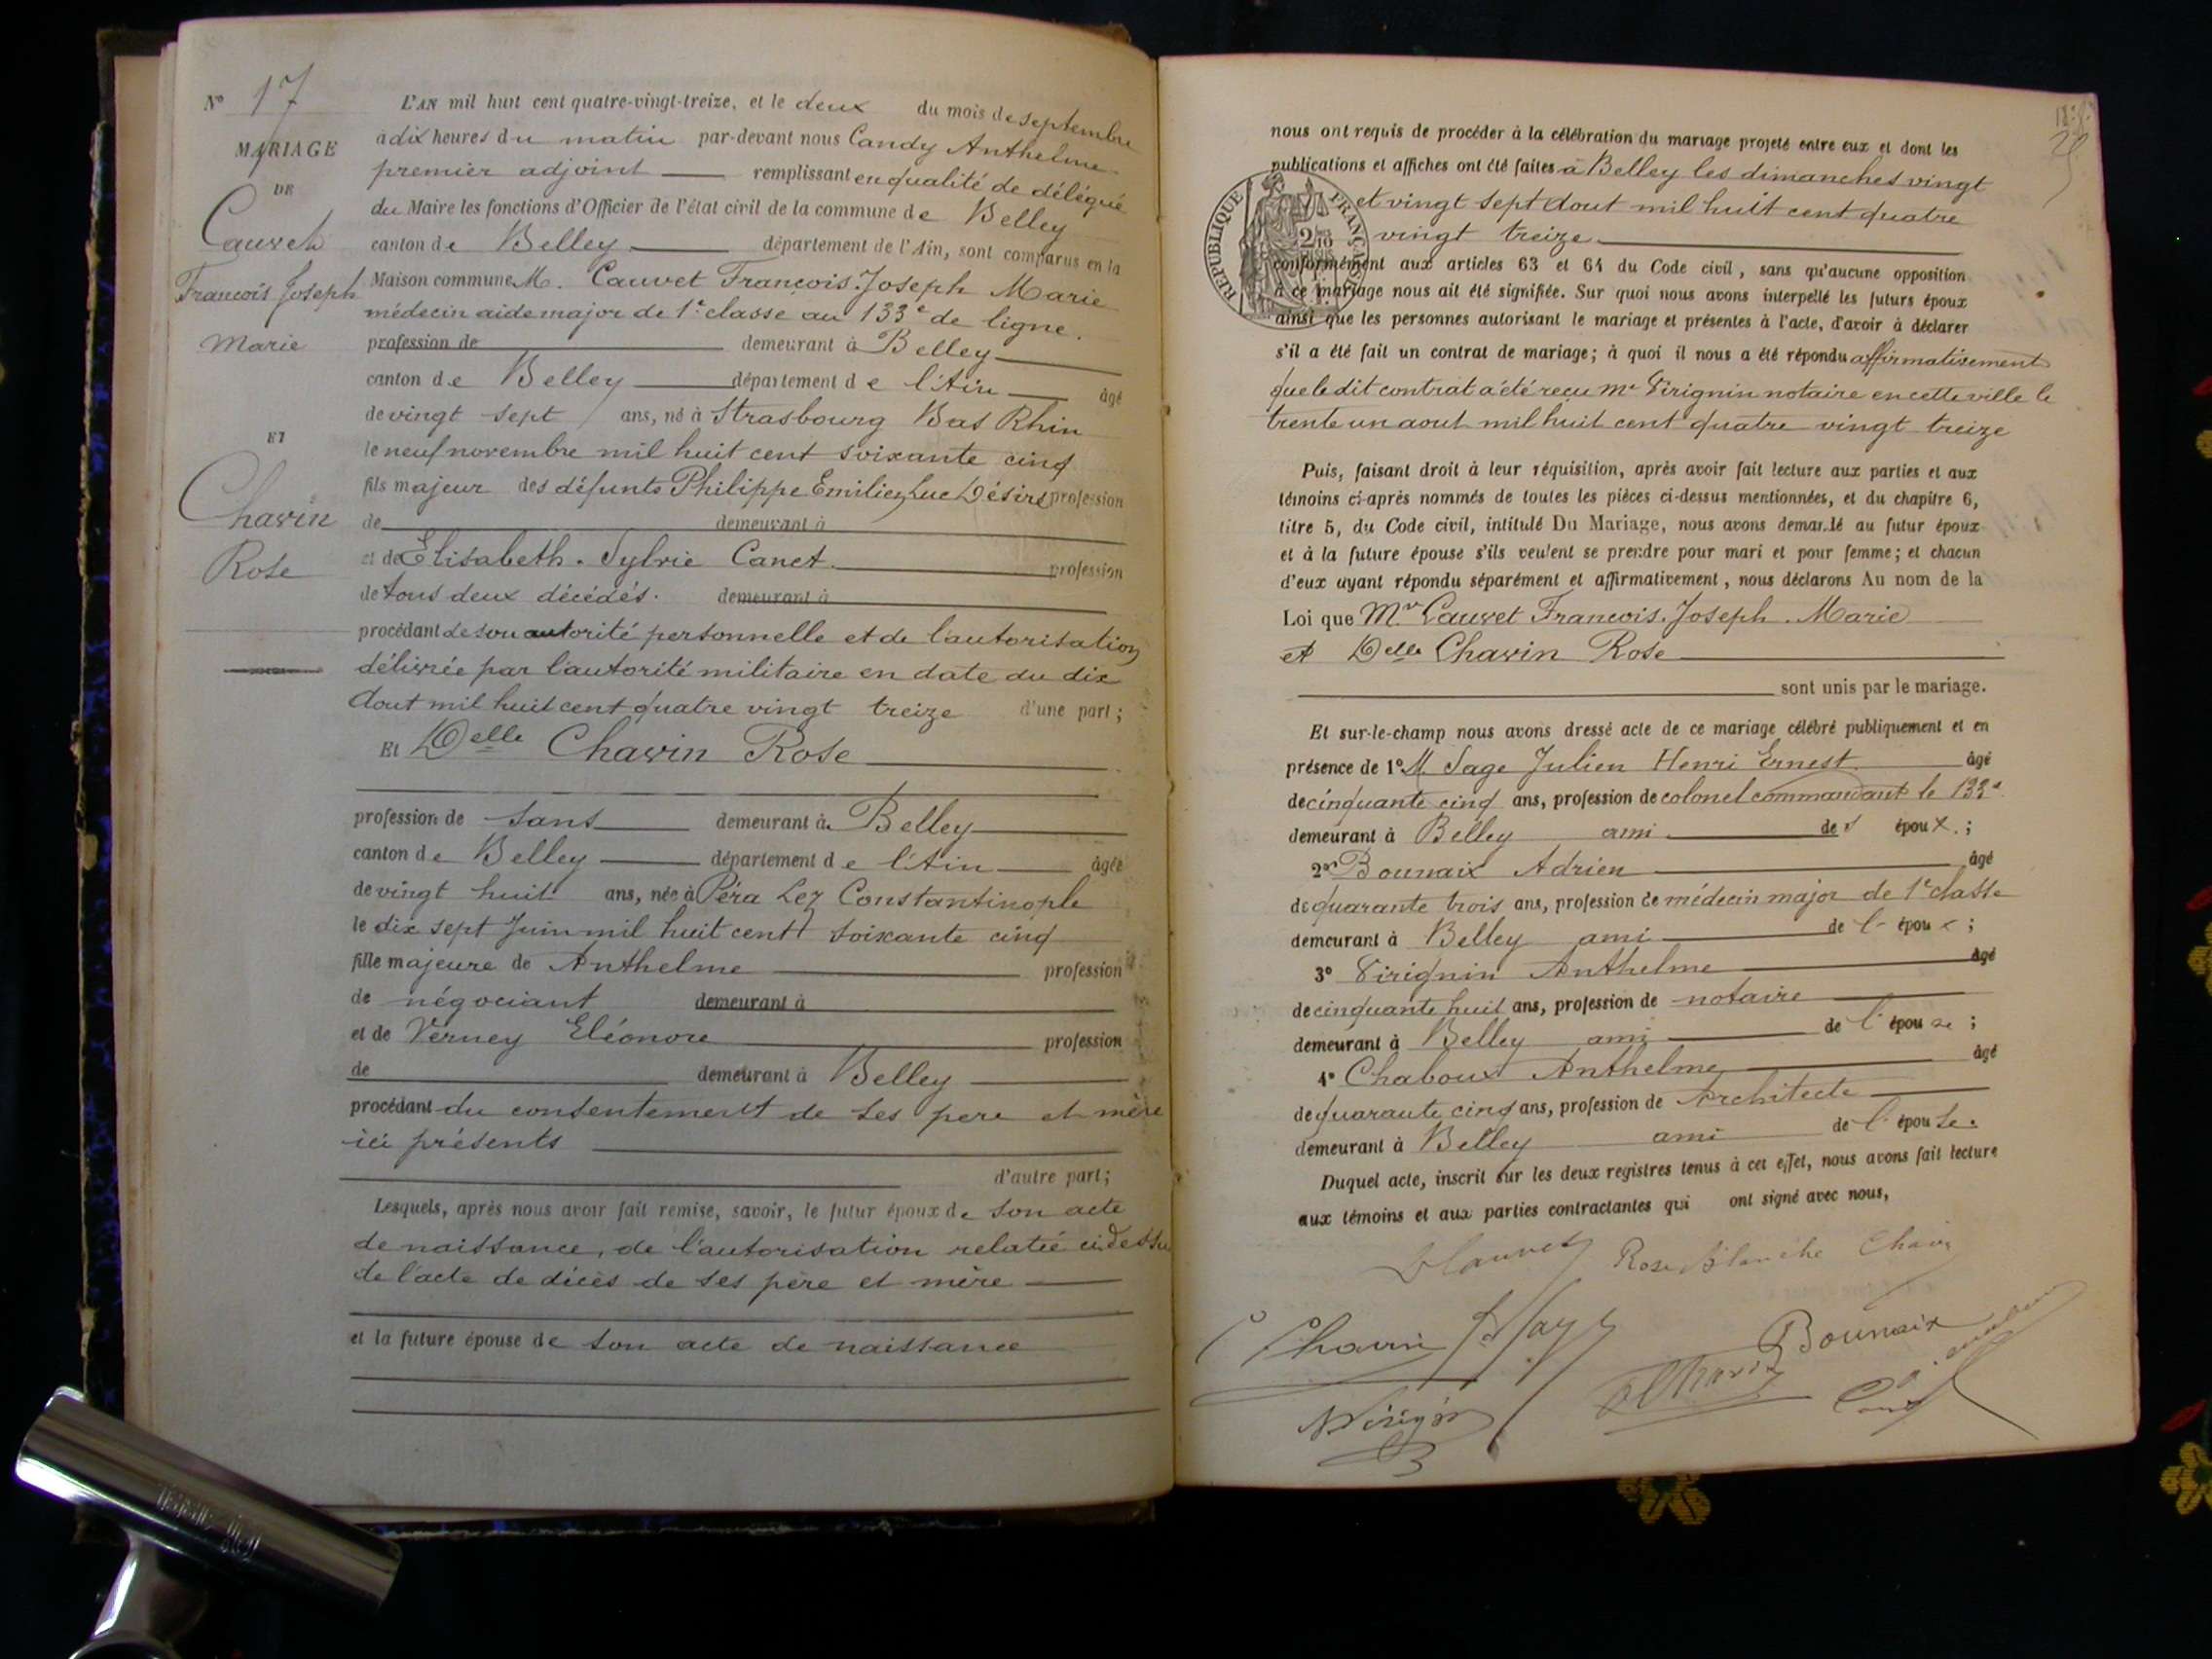 N° 17
MARIAGE
DE
Cauvet
François Joseph
Marie
ET
Chavin
Rose
L'AN mil huit cent quatre-vingt-treize, et le deux du mois de septembre
à dix heures du matin par-devant nous Candy Anthelme
premier adjoint remplissant en qualité de délégué
du Maire les fonctions d'Officier de l'état civil de la commune de Belley
canton de Belley département de l'Ain, sont comparus en la
Maison commune M. Cauvet François Joseph Marie
médecin aide major de 1e classe au 133e de ligne.
profession de demeurant à Belley
canton de Belley département de l'Ain âgé
de vingt sept ans, né à Strasbourg Bas Rhin
le neuf novembre mil huit cent soixante cinq
fils majeur des défunts Philippe Emilien Luc Désiré profession
de demeurant à
et de Elisabeth Sylvie Canet profession
de tous deux décédés. demeurant à
procédant de son autorité personnelle et de l'autorisation
délivrée par l'autorité militaire en date du dix
Aout mil huit cent quatre vingt treize d'une part;
Et Delle Chavin Rose
profession de sans demeurant à Belley
canton de Belley département de l'Ain âgée
de vingt huit ans, née à Péra Lez Constantinople
le dix sept Juin mil huit cent soixante cinq
fille majeure de Anthelme profession
de négociant demeurant à
et de Verney Eléonore profession
de demeurant à Belley
procédant du consentement de ses pere et mère
ici présents
d'autre part;
Lesquels, après nous avoir fait remise, savoir, le futur époux de son acte
de naissance, de l'autorisation relatée ci dessus
de l'acte de décès de ses père et mère
et la future épouse de son acte de naissance
nous ont requis de procéder à la célébration du mariage projeté entre eux et dont les
publications et affiches ont été faites à Belley les dimanches vingt
et vingt sept Aout mil huit cent quatre
vingt treize
RÉPUBLIQUE FRANÇAISE
conformément aux articles 63 et 64 du Code civil, sans qu'aucune opposition
à ce mariage nous ait été signifiée. Sur quoi nous avons interpellé les futurs époux
ainsi que les personnes autorisant le mariage et présentes à l'acte, d'avoir à déclarer
s'il a été fait un contrat de mariage; à quoi il nous a été répondu affirmativement
que le dit contrat a été reçu Me Virignin notaire en cette ville le
trente un aout mil huit cent quatre vingt treize
Puis, faisant droit à leur réquisition, après avoir fait lecture aux parties et aux
témoins ci-après nommés de toutes les pièces ci-dessus mentionnées, et du chapitre 6,
titre 5, du Code civil, intitulé Du Mariage, nous avons demandé au futur époux
et à la future épouse s'ils veulent se prendre pour mari et pour femme; et chacun
d'eux ayant répondu séparément et affirmativement, nous déclarons Au nom de la
Loi que Mr Cauvet François Joseph Marie
et Delle Chavin Rose
sont unis par le mariage.
Et sur-le-champ nous avons dressé acte de ce mariage célébré publiquement et en
présence de 1° M. Sage Julien Henri Ernest âgé
de cinquante cinq ans, profession de colonel commandant le 133e
demeurant à Belley ami des époux.;
2° Bounaix Adrien âgé
de quarante trois ans, profession de médecin major de 1e classe
demeurant à Belley ami de l'époux;
3° Virignin Anthelme âgé
de cinquante huit ans, profession de notaire
demeurant à Belley ami de l'épouse;
4° Chaboux Anthelme âgé
de quarante cinq ans, profession de Architecte
demeurant à Belley ami de l'épouse.
Duquel acte, inscrit sur les deux registres tenus à cet effet, nous avons fait lecture
aux témoins et aux parties contractantes qui ont signé avec nous,
Cauvet Rose Blanche Chavin
Chavin
Bounaix